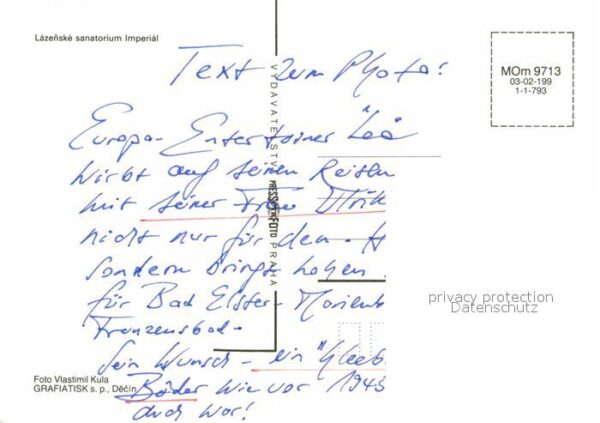 Lázeňské sanatorium Imperiál
MOm 9713
03-02-199
1-1-793
Text zum Photo!
Europa-Entertainer "Leo
wirbt auf seinen Reisen
mit seiner Frau
nicht nur für den
sondern bringt
für Bad Elster - Marienb
Franzensbad -
Sein Wunsch - ein
Bäder wie vor 1945
auch war!
VYDAVATELSTVÍ PRESSFOTO PRAHA
privacy protection
Datenschutz
Foto Vlastimil Kula
GRAFIATISK s. p., Děčín